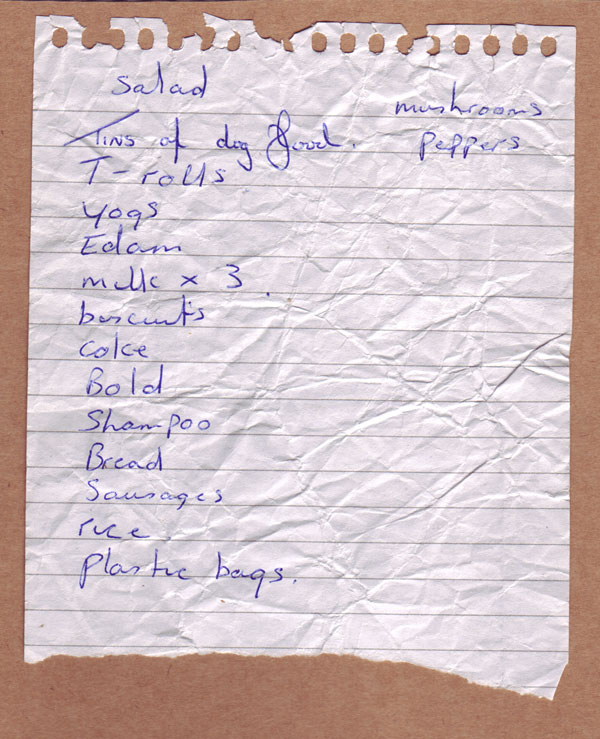 salad
mushrooms
Tins of dog food.
peppers
T-rolls
yogs
Edam
milk x 3.
biscuits
coke
Bold
Shampoo
Bread
Sausages
rice.
plastic bags.